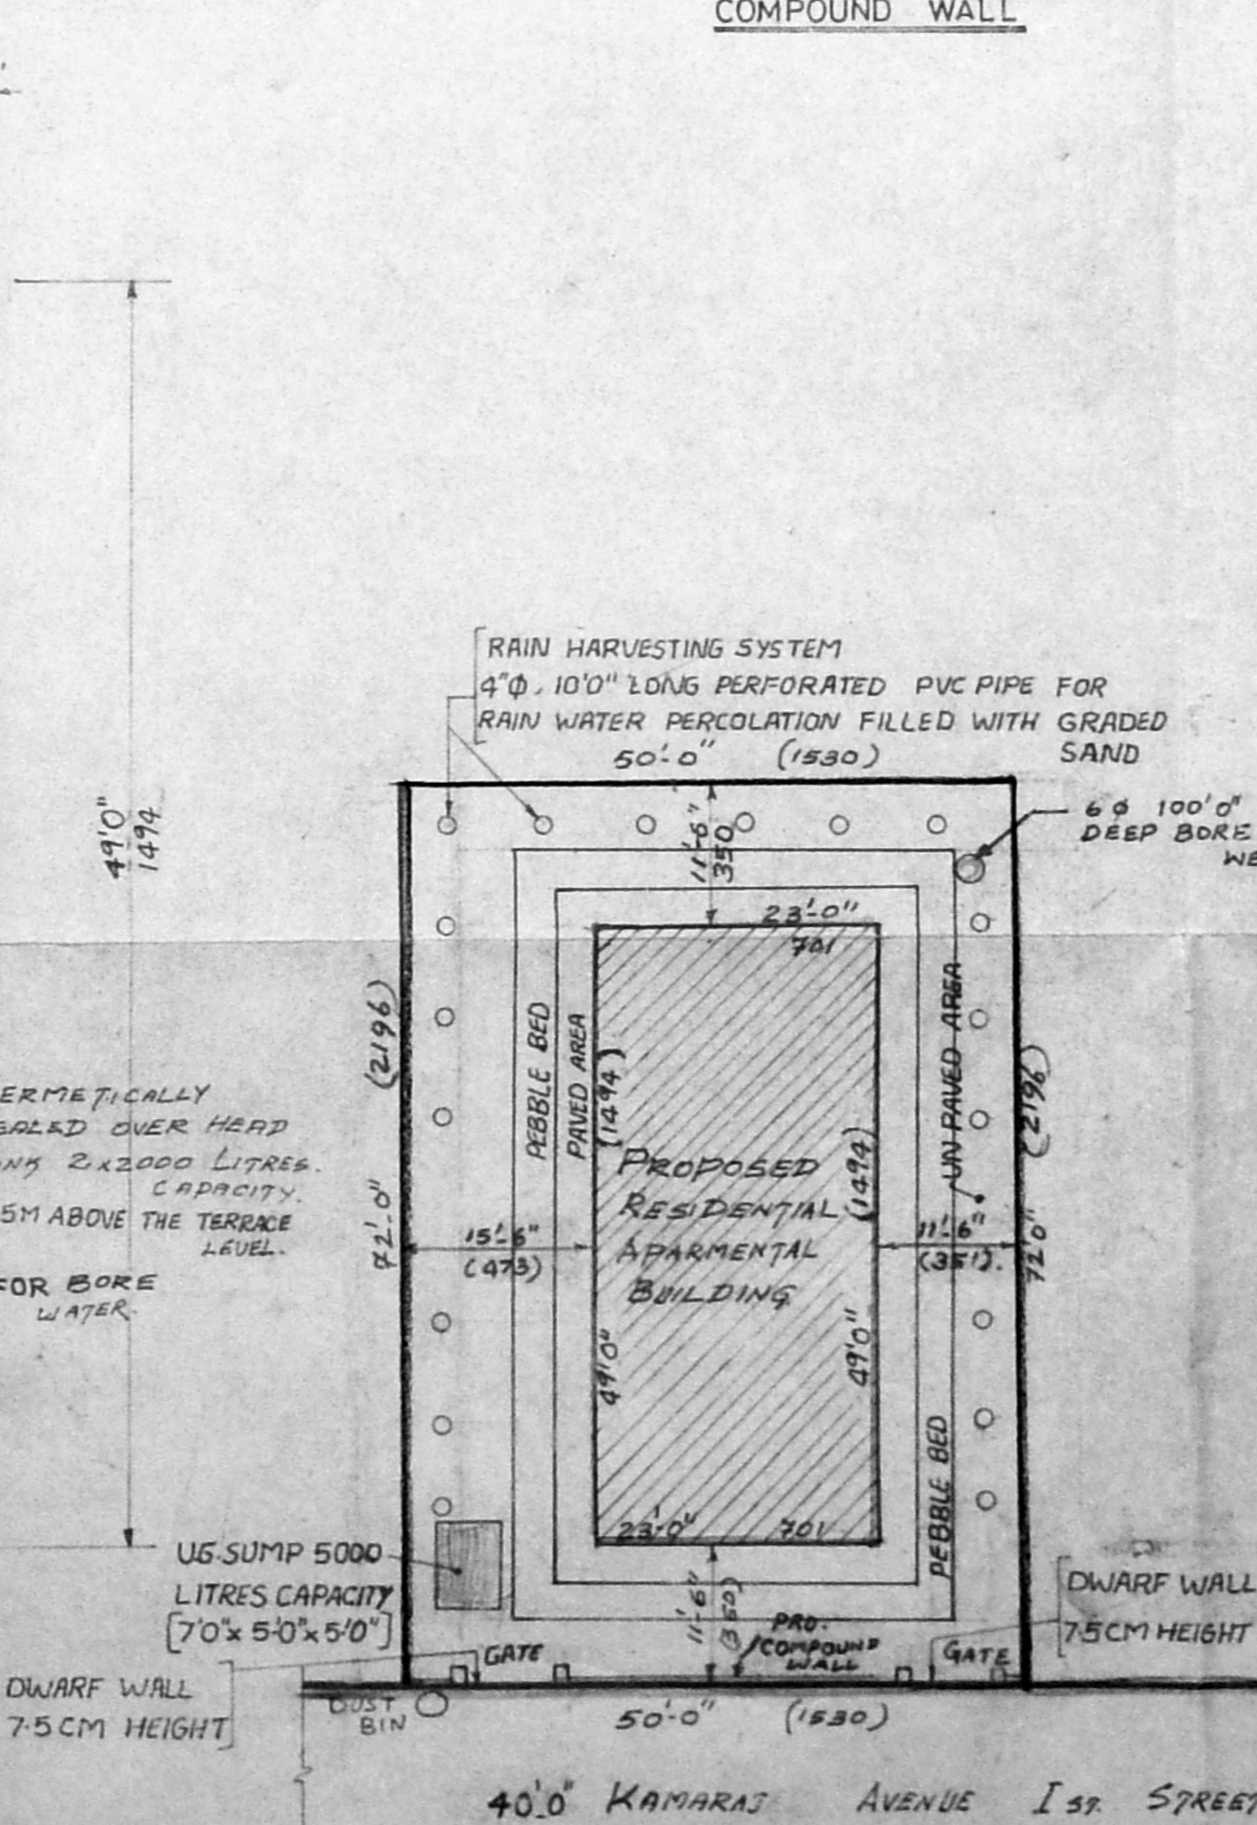 COMPOUND WALL
RAIN HARVESTING SYSTEM
4"Φ, 10'0" LONG PERFORATED PVC PIPE FOR
RAIN WATER PERCOLATION FILLED WITH GRADED
SAND
50'-0" (1530)
6 Φ 100'0"
DEEP BORE
WE
49'0"
1494
11'-6"
350
23'-0"
701
(2196)
72'-0"
PEBBLE BED
PAVED AREA
(1494)
49'0"
PROPOSED
RESIDENTIAL
APARMENTAL
BUILDING
(1494)
49'0"
UN PAVED AREA
(2196)
72'0"
15'-6"
(473)
11'-6"
(351).
ERMETICALLY
EALED OVER HEAD
ANK 2x2000 LITRES.
CAPACITY.
5M ABOVE THE TERRACE
LEVEL.
FOR BORE
WATER.
PEBBLE BED
23'-0" 701
UG.SUMP 5000
LITRES CAPACITY
[7'0"x 5'-0"x5'-0"]
11'-6"
(350)
PRO.
COMPOUND
WALL
GATE
GATE
DWARF WALL
7.5CM HEIGHT
DWARF WALL
7.5CM HEIGHT
DUST
BIN
50'-0" (1530)
40'.0" KAMARAJ AVENUE I ST. STREET